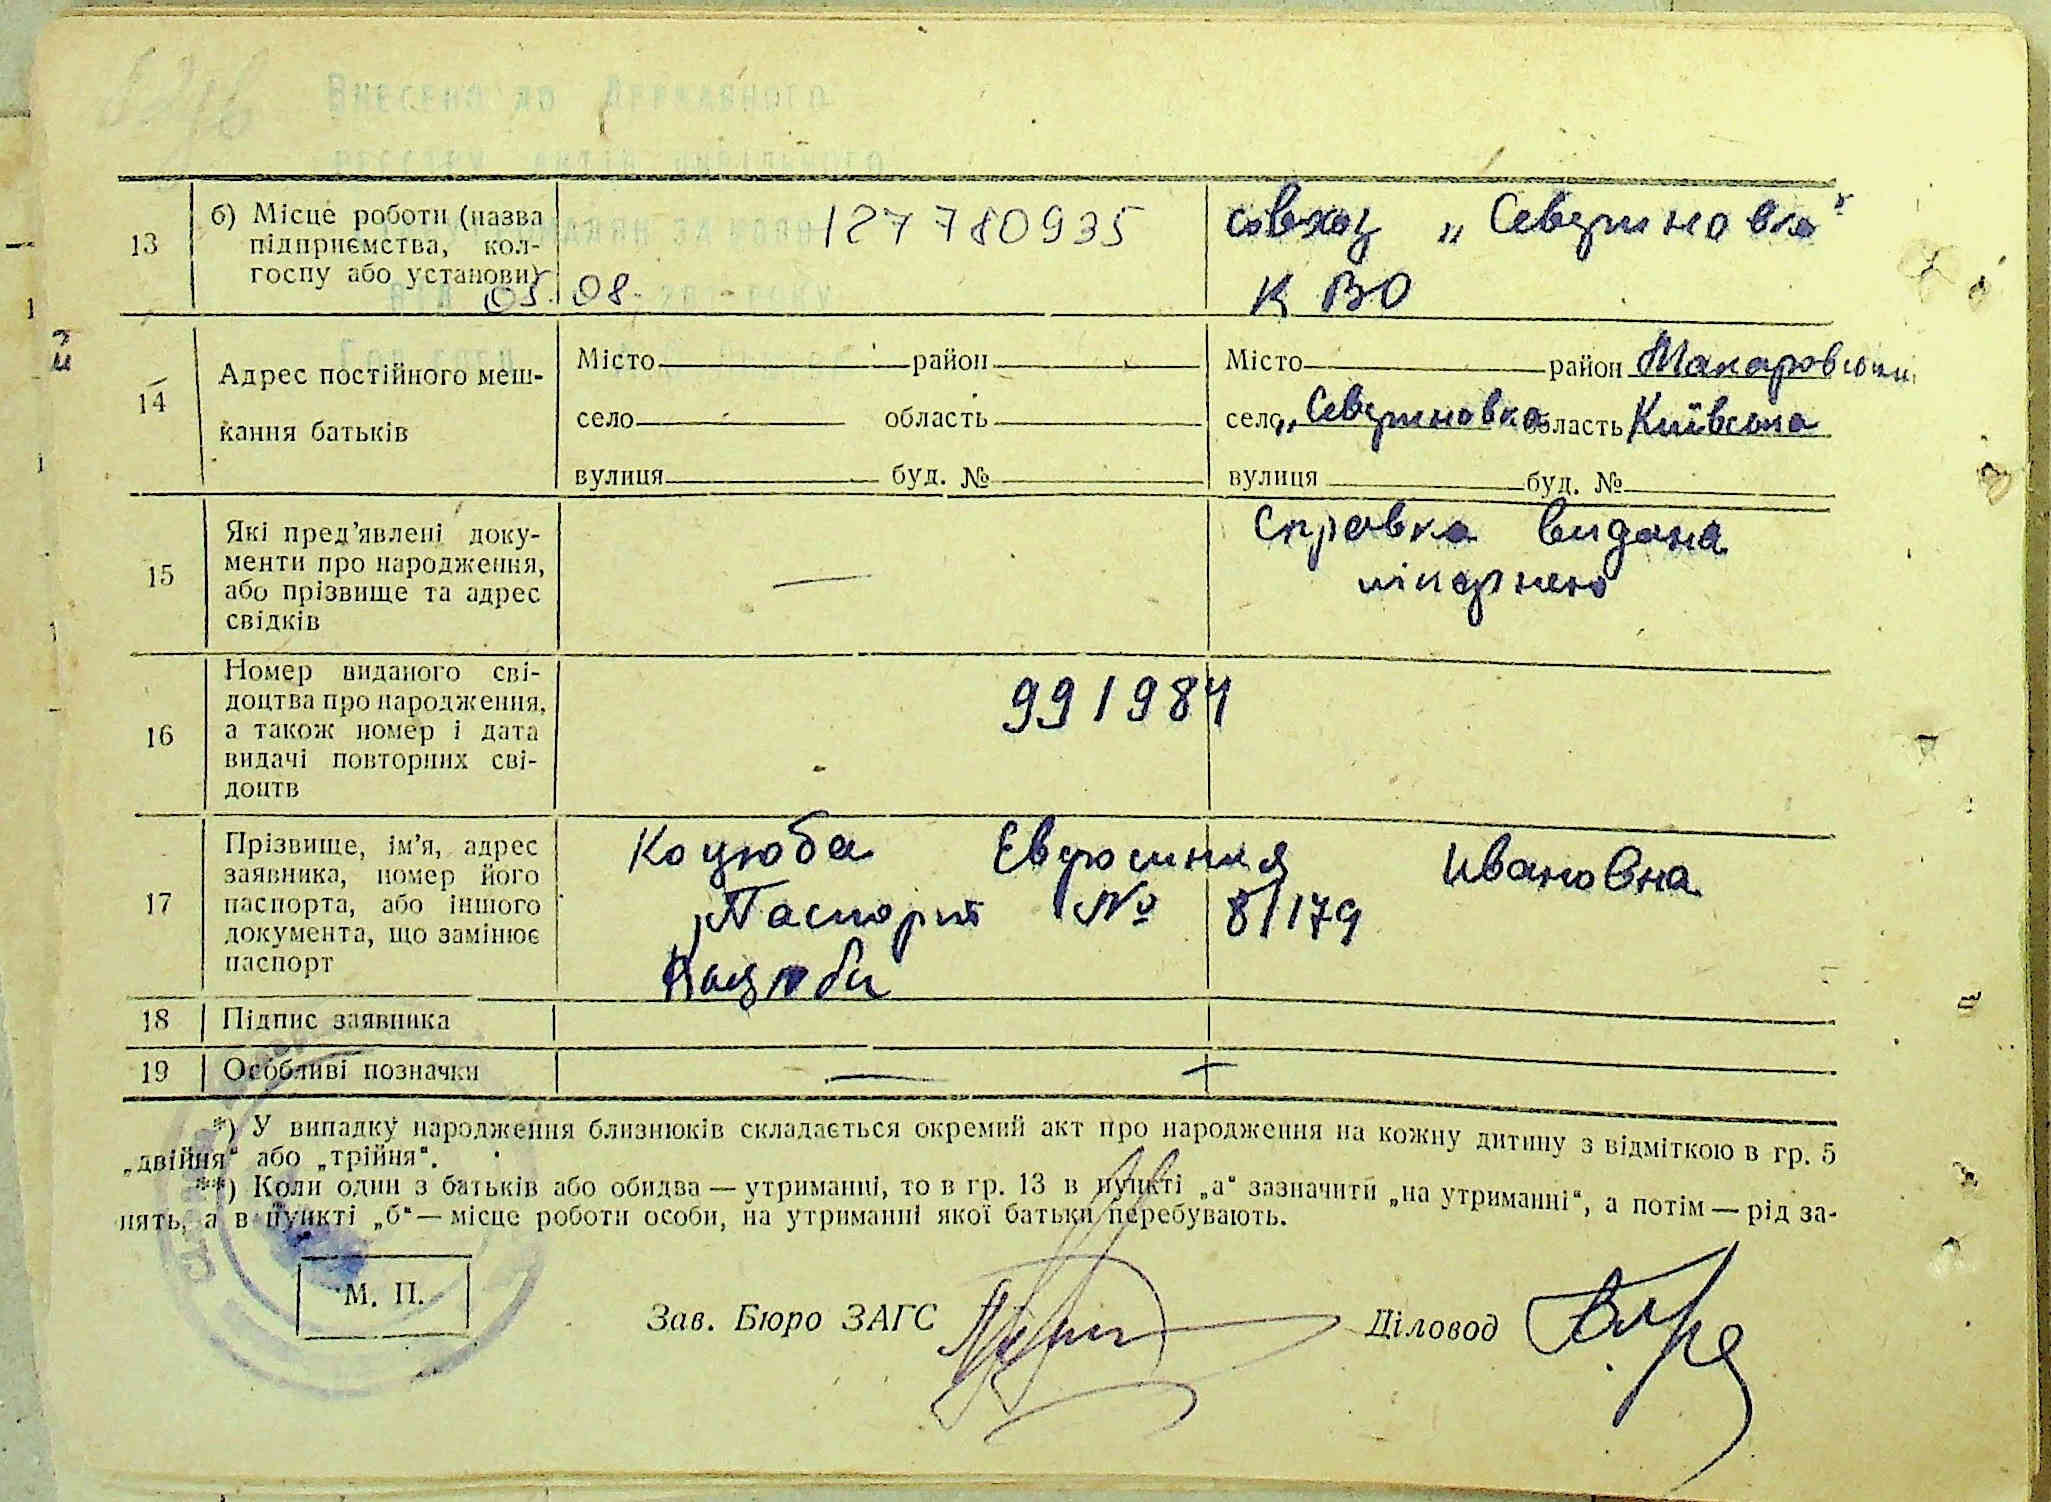 Внесено до Державного
реєстру актів цивільного
13 б) Місце роботи (назва підприємства, колгоспу або установи)
127780935
03. 08.
совхоз „Севериновка"
КВО
14 Адрес постійного мешкання батьків
Місто район
село область
вулиця буд. №
Місто район Макаровський
село „Севериновка область Київська
вулиця буд. №
15 Які пред'явлені документи про народження, або прізвище та адрес свідків
—
Справка видана
лікарнею
16 Номер виданого свідоцтва про народження, а також номер і дата видачі повторних свідоцтв
991984
17 Прізвище, ім'я, адрес заявника, номер його паспорта, або іншого документа, що замінює паспорт
Коцюба Евросиния Ивановна
Паспорт № 8/179
Коцюба
18 Підпис заявника
19 Особливі позначки
— —
*) У випадку народження близнюків складається окремий акт про народження на кожну дитину з відміткою в гр. 5
„двійня" або „трійня".
**) Коли один з батьків або обидва — утриманці, то в гр. 13 в пункті „а" зазначити „на утриманні", а потім — рід за-
нять, а в пункті „б" — місце роботи особи, на утриманні якої батьки перебувають.
М. П.
Зав. Бюро ЗАГС
Діловод